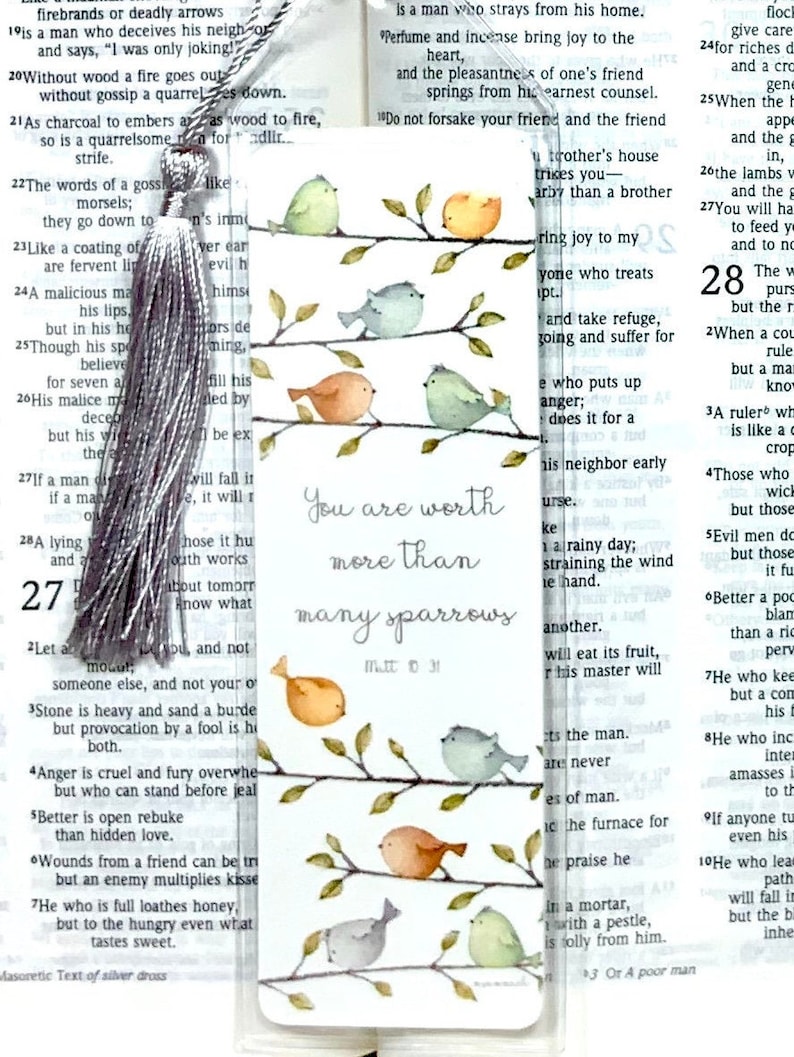 firebrands or deadly arrows
19is a man who deceives his neighbor
and says, "I was only joking!"
20Without wood a fire goes out;
without gossip a quarrel dies down.
21As charcoal to embers as wood to fire,
so is a quarrelsome for
strife.
22The words of a gossip like
morsels;
they go down to inm
23Like a coating of ver ear
are fervent lip evil h
24A malicious ma himse
his lips,
but in his he ors de
25Though his spe ming,
believe
for seven a fill his
26His malice m led by
dece
but his wi ll be ex
the a
27If a man will fall in
if a ma e, it will r
28A lying hose it hu
and a outh works
27 bout tomorr
know what
2Let a you, and not
mouth;
someone else, and not your o
3Stone is heavy and sand a burde
but provocation by a fool is he
both.
4Anger is cruel and fury overwhe
but who can stand before jeal
5Better is open rebuke
than hidden love.
6Wounds from a friend can be tr
but an enemy multiplies kisse
7He who is full loathes honey,
but to the hungry even what
tastes sweet.
Masoretic Text of silver dross
is a man who strays from his home.
9Perfume and incense bring joy to the
heart,
and the pleasantness of one's friend
springs from his earnest counsel.
10Do not forsake your friend and the friend
brother's house
trikes you—
arby than a brother
ring joy to my
yone who treats
pt.
and take refuge,
going and suffer for
who puts up
anger;
does it for a
his neighbor early
urse.
ke
a rainy day;
straining the wind
he hand.
another.
will eat its fruit,
r his master will
cts the man.
are never
es of man.
the furnace for
he praise he
in a mortar,
with a pestle,
is folly from him.
3 Or A poor man
You are worth
more than
many sparrows
Matt 10 31
flock
give care
24for riches d
and a cro
gene
25When the h
appe
and the g
in,
26the lambs w
and the g
27You will ha
to feed yo
and to no
28 The w
purs
but the ri
2When a cou
rule
but a ma
know
3A rulerb wh
is like a d
crop
4Those who
wick
but those
5Evil men do
but those
it fu
6Better a poo
blam
than a ric
perv
7He who kee
but a com
his f
8He who inc
inter
amasses i
to th
9If anyone tu
even his
10He who lea
path
will fall in
but the bl
inhe